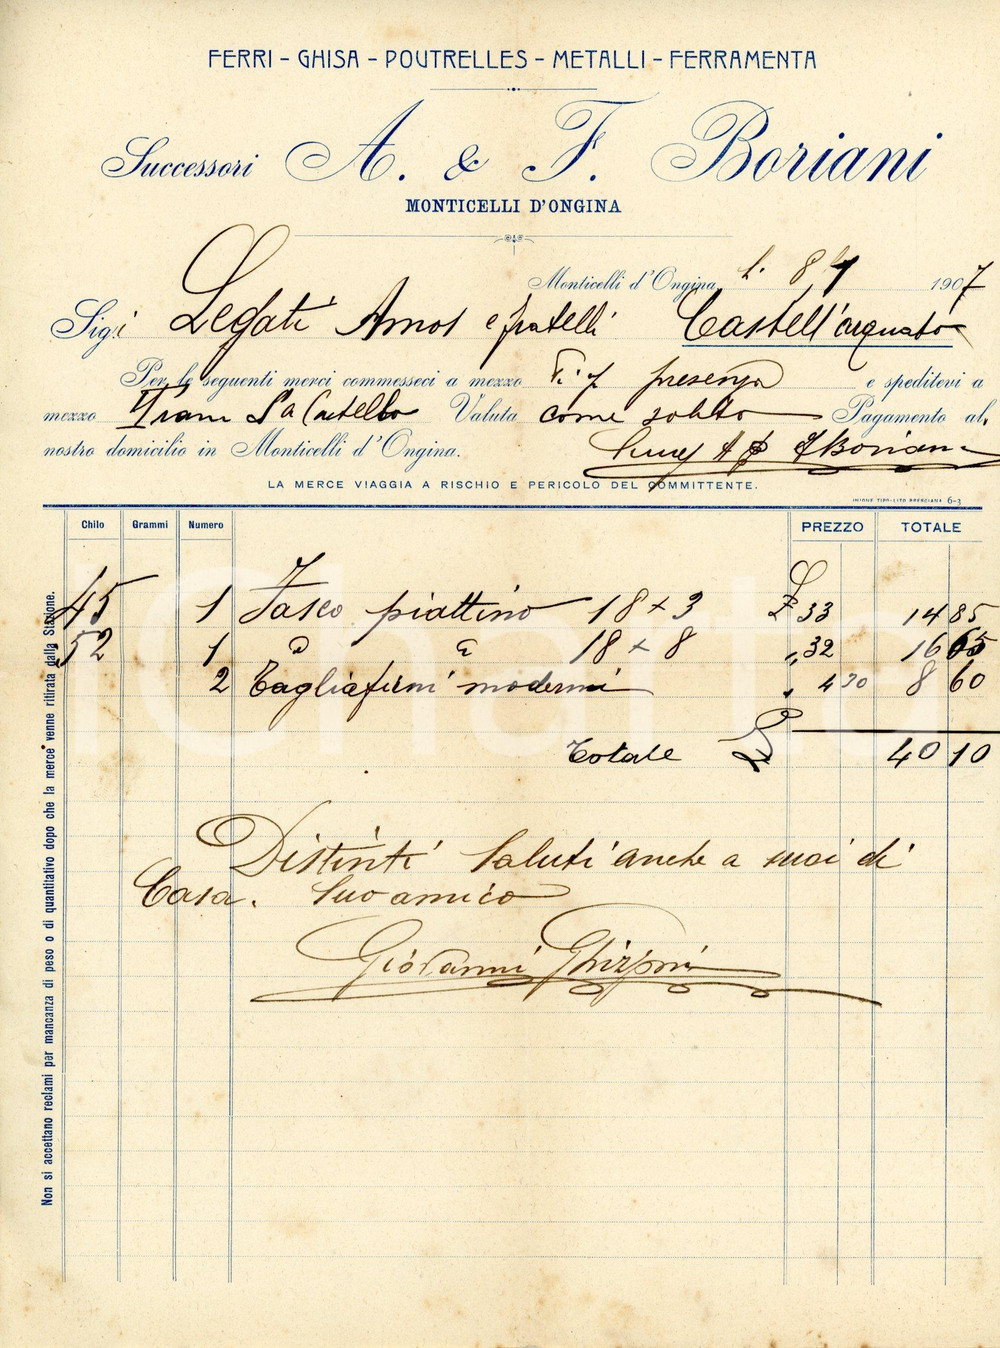 FERRI - GHISA - POUTRELLES - METALLI - FERRAMENTA
Successori A. & F. Boriani
MONTICELLI D'ONGINA
Monticelli d'Ongina, li. 8/9 1907
Sig.i Legati Amos e fratelli Castell'arquato
Per le seguenti merci commesseci a mezzo presenza e speditevi a
mezzo Tram Sa Castello Valuta come solito Pagamento al
nostro domicilio in Monticelli d'Ongina. Boriani
LA MERCE VIAGGIA A RISCHIO E PERICOLO DEL COMMITTENTE.
UNIONE TIPO-LITO BRESCIANA 6-3
Chilo Grammi Numero PREZZO TOTALE
45 1 Fasco piattino 18 x 3 £ 33 14 85
52 1 " " 18 x 8 " 32 16 65
2 Tagliaferri moderni " 4 30 8 60
Totale £ 40 10
Distinti Saluti anche a suoi di
Casa. Suo amico
Giovanni Ghizzoni
Non si accettano reclami per mancanza di peso o di quantitativo dopo che la merce venne ritirata dalla Stazione.